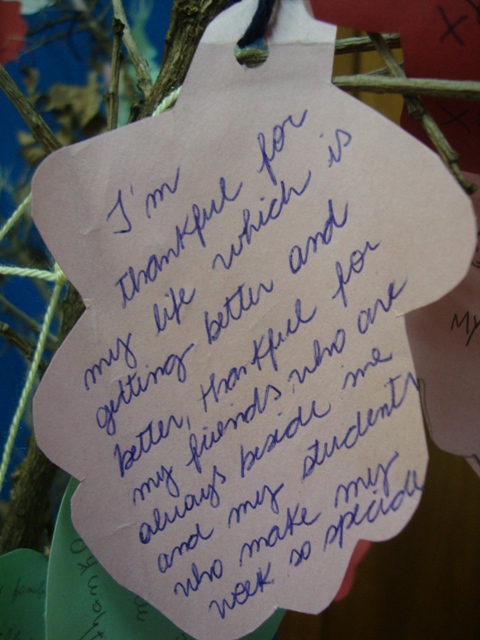 I'm
thankful for
my life which is
getting better and
better, thankful for
my friends who are
always beside me
and my students
who make my
week so special
MY